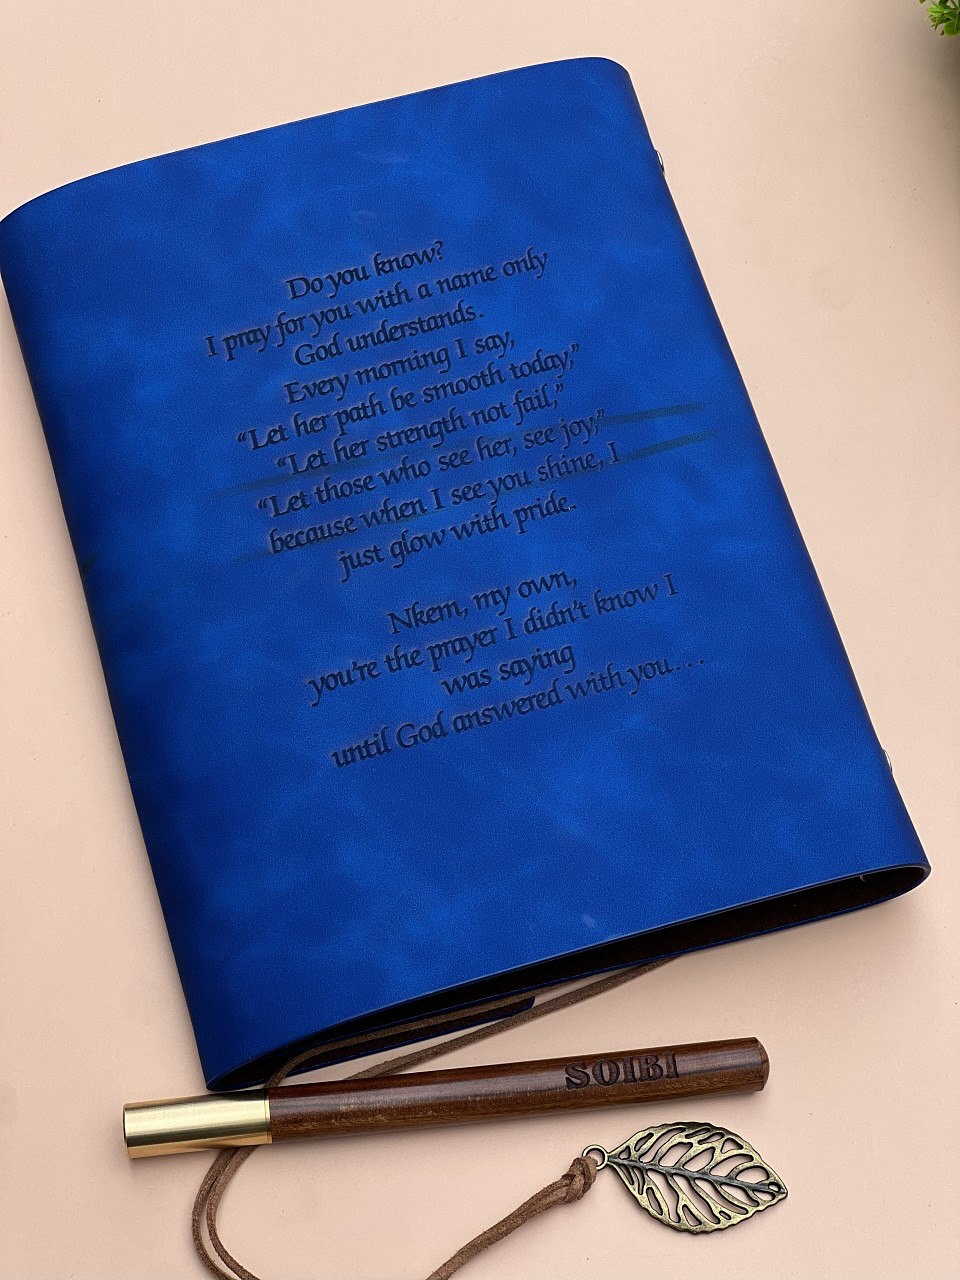 Do you know?
I pray for you with a name only
God understands.
Every morning I say,
“Let her path be smooth today,”
“Let her strength not fail,”
“Let those who see her, see joy,”
because when I see you shine, I
just glow with pride.
Nkem, my own,
you're the prayer I didn't know I
was saying
until God answered with you...
SOIBI